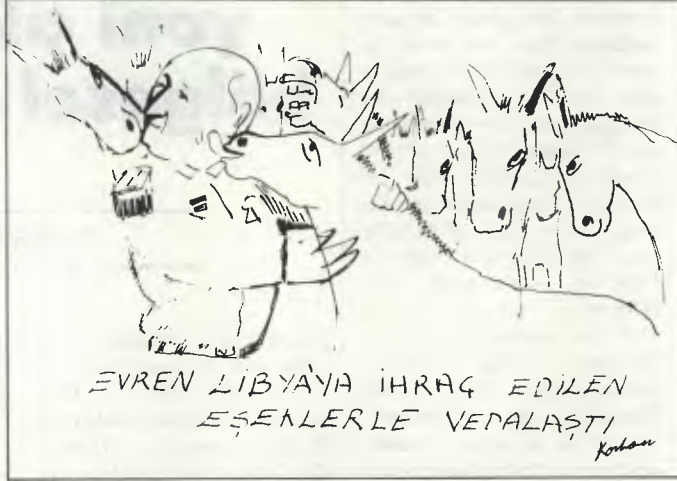 EVREN LİBYA'YA İHRAÇ EDİLEN
EŞEKLERLE VEDALAŞTI